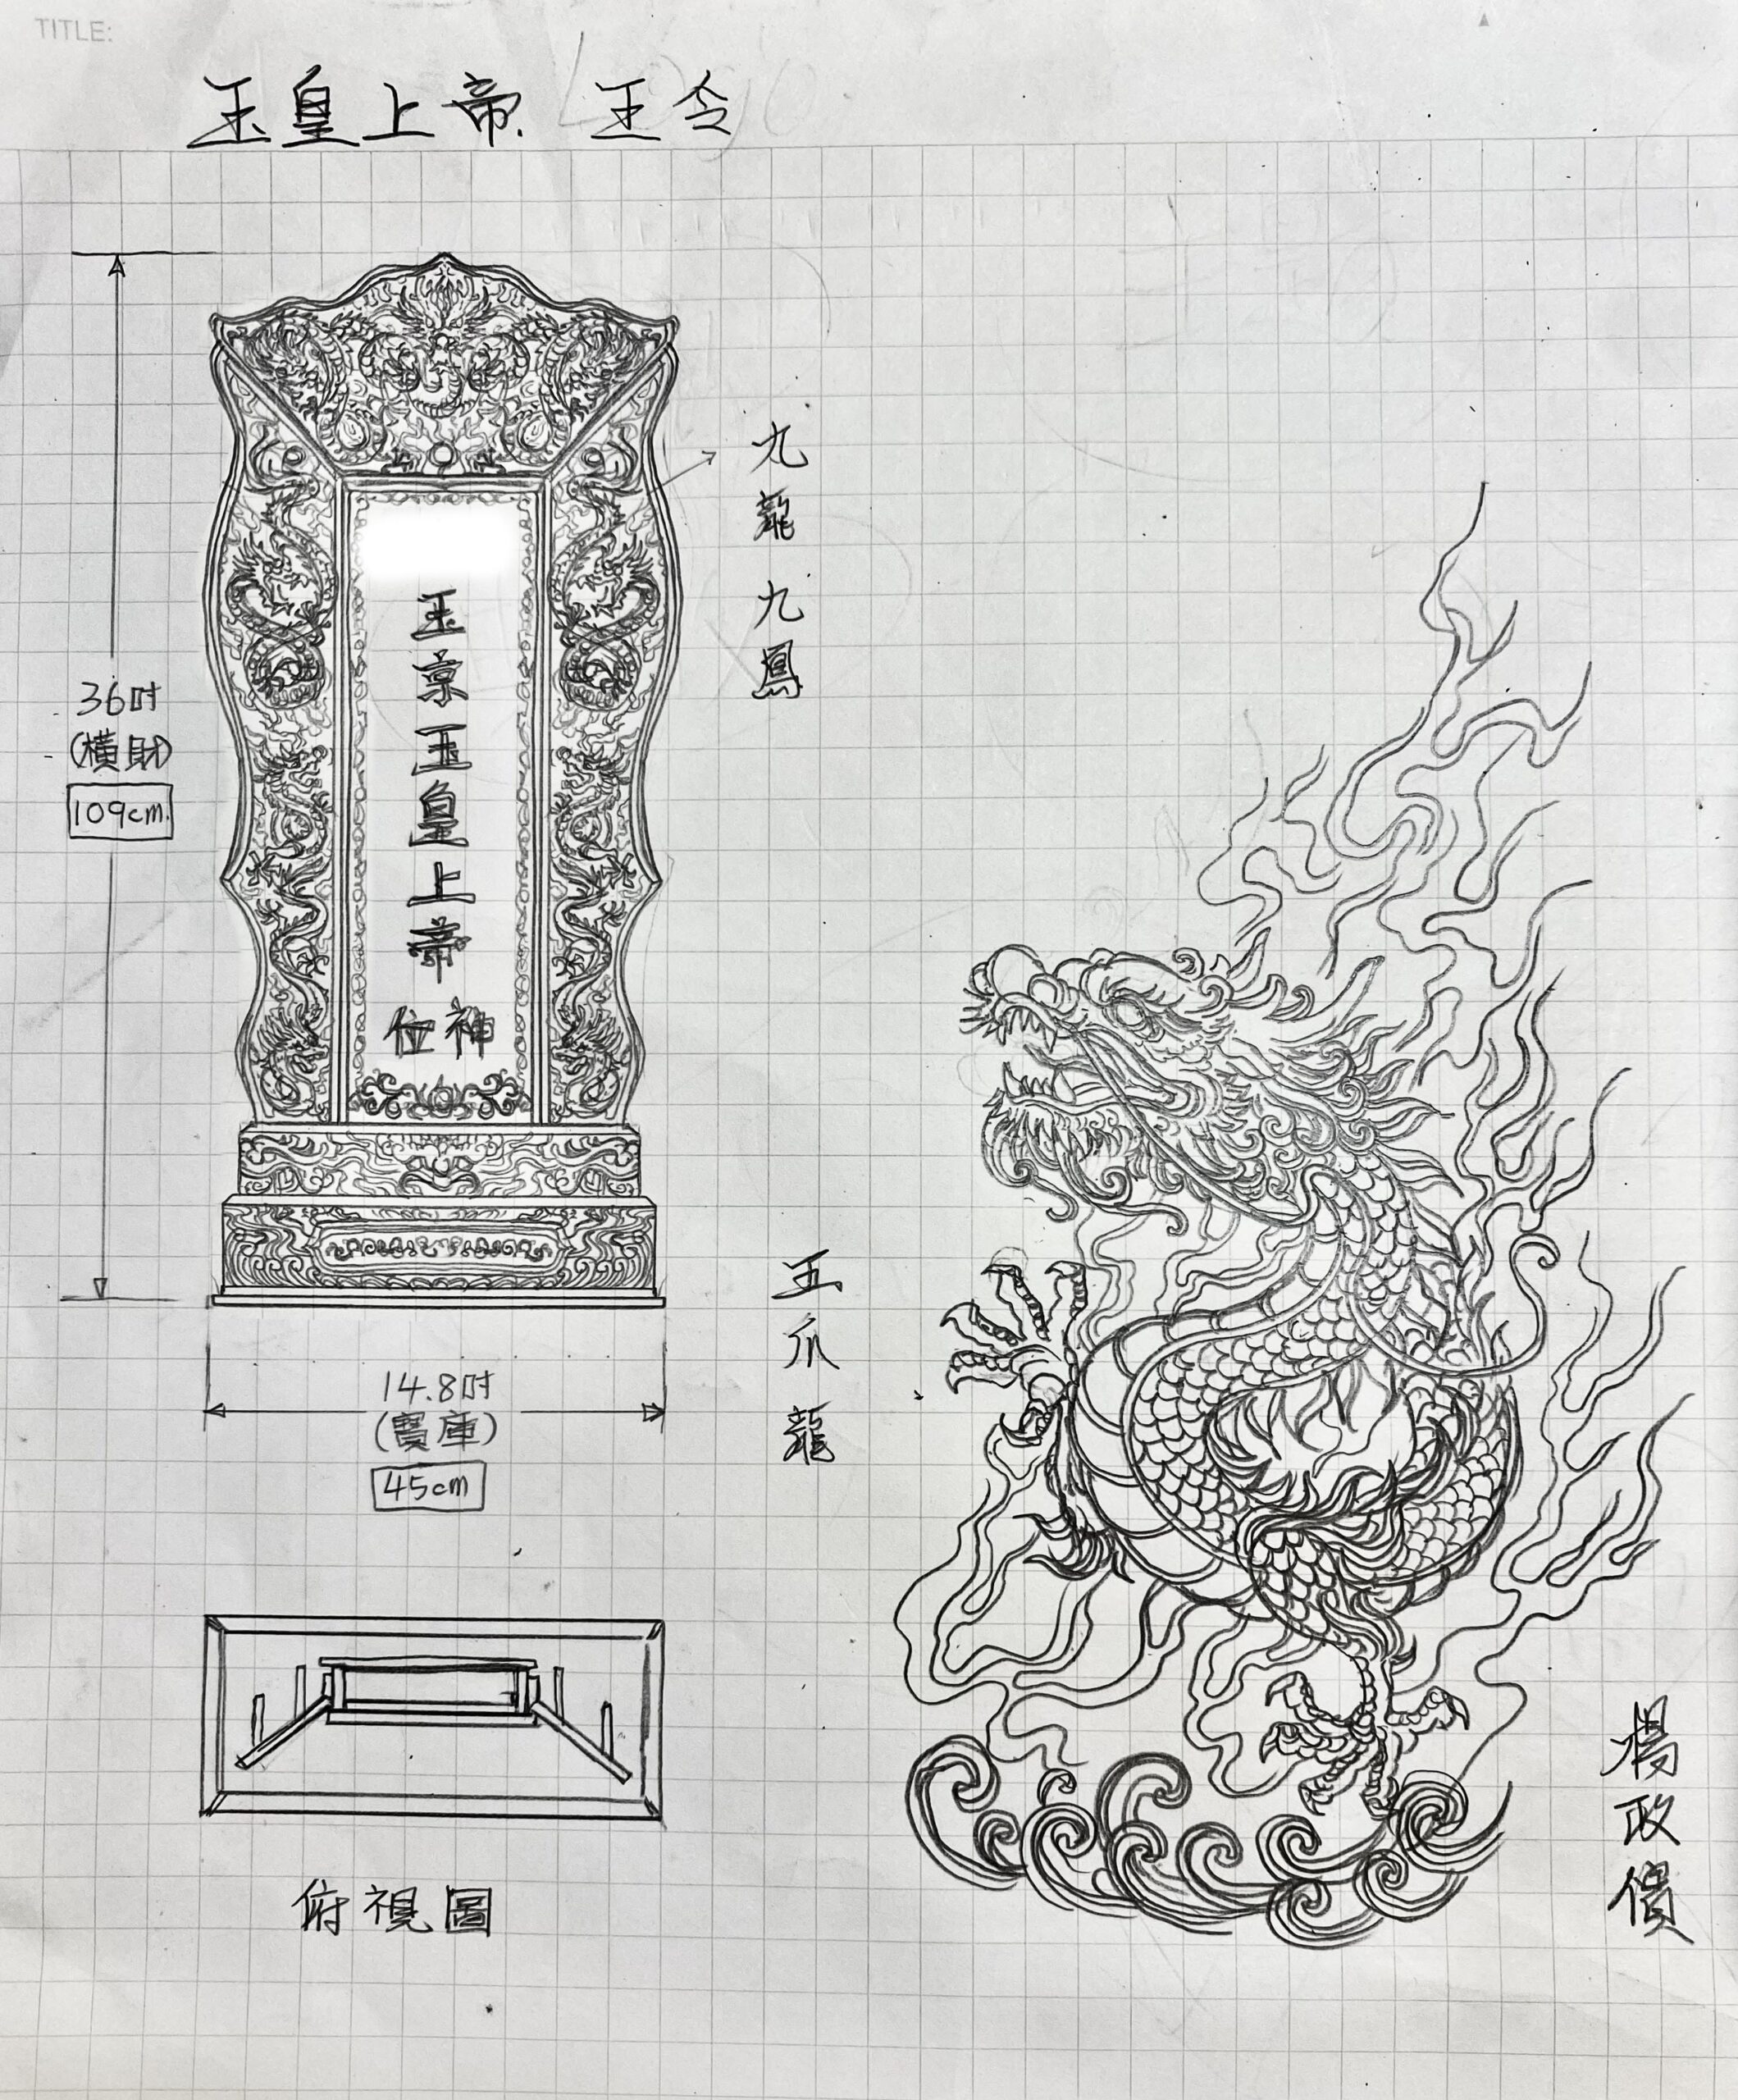 TITLE:
玉皇上帝 王令
九龍九鳳
玉京玉皇上帝
位神
36吋
(橫財)
109cm.
五爪龍
14.8吋
(寶庫)
45cm
俯視圖
楊政